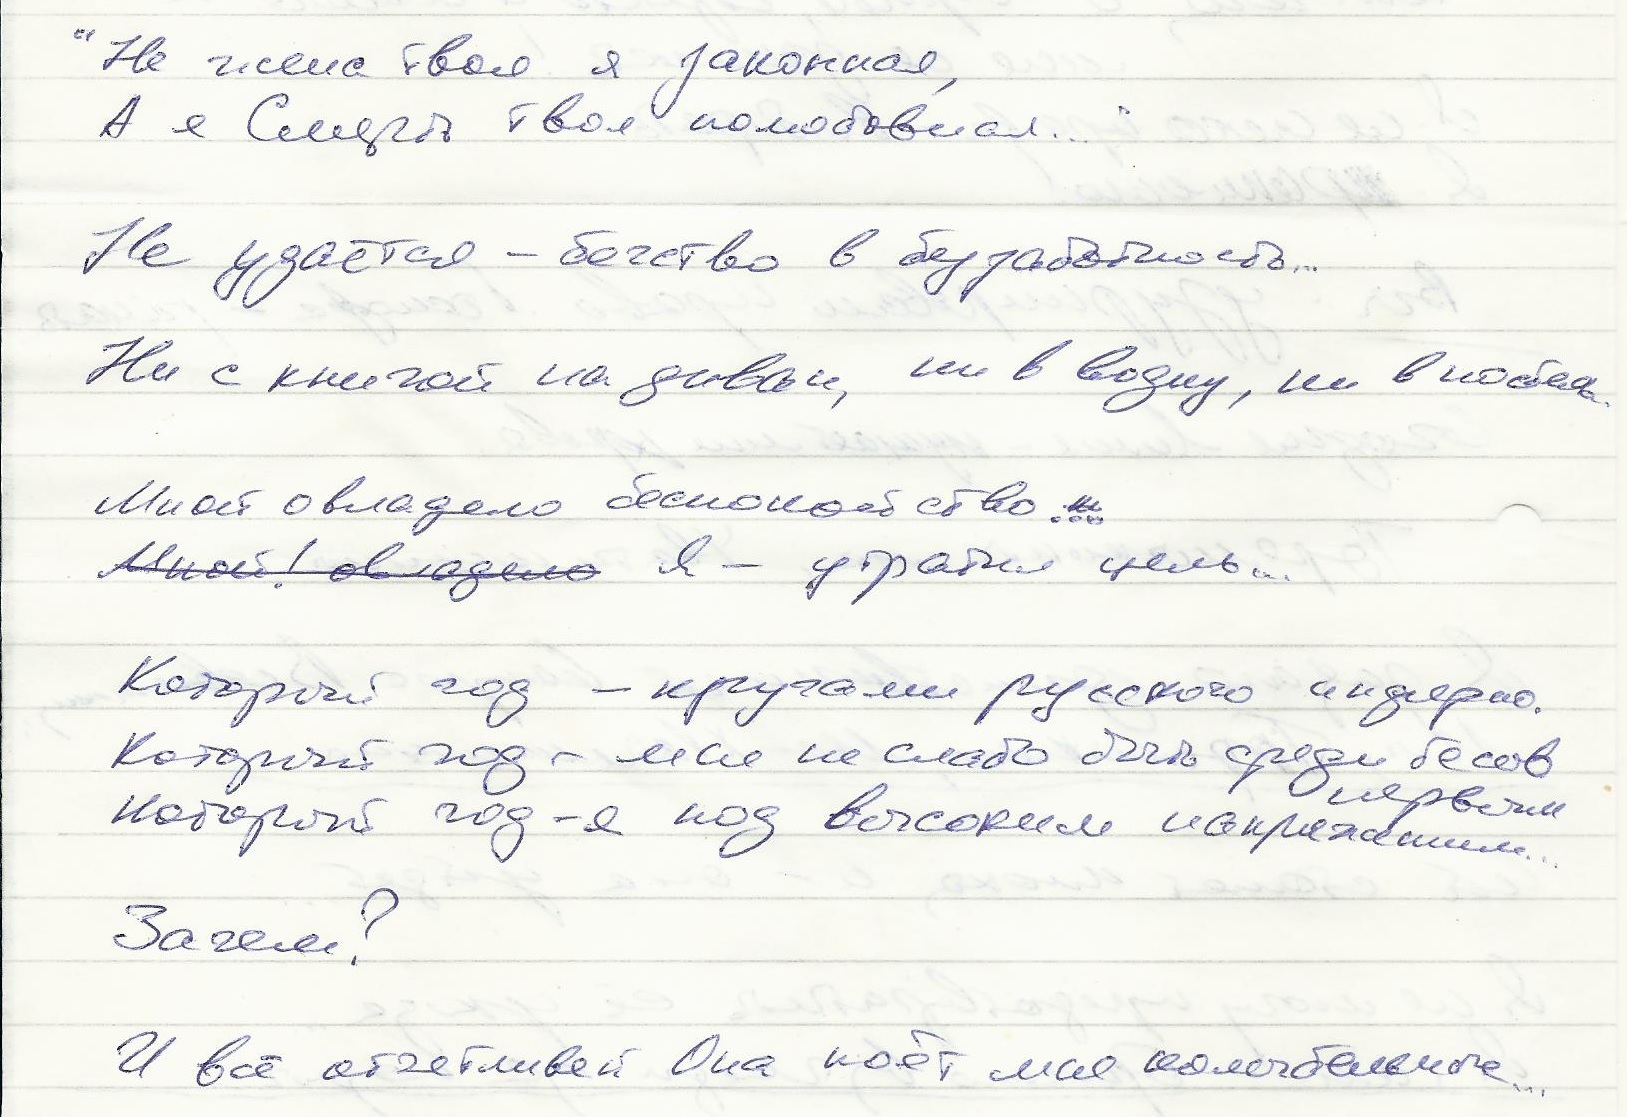 "Не жена твоя я законная,
А я Смерть твоя полюбовная..."
Не удаётся – бегство в беззаботность...
Ни с книгой на диван, ни в водку, ни в постель.
Мной овладело беспокойство...
Мной! овладело Я – утратил цель...
Который год – кругами русского индерно.
Который год – мне не слабо быть среди бесов
первым
Который год – я под высоким напряжением...
Зачем?
И всё отчетливей Она поёт мне колыбельные...